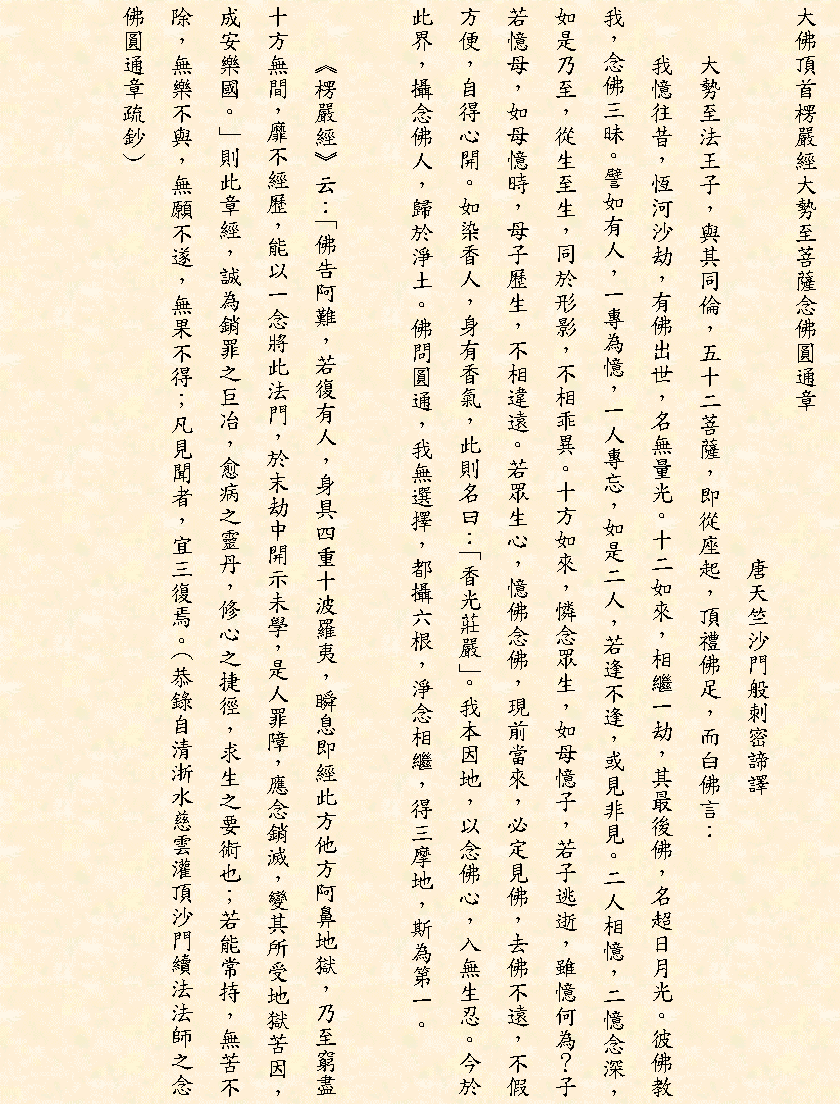 大佛頂首楞嚴經大勢至菩薩念佛圓通章
唐天竺沙門般剌密諦譯
大勢至法王子，與其同倫，五十二菩薩，即從座起，頂禮佛足，而白佛言：
我憶往昔，恆河沙劫，有佛出世，名無量光。十二如來，相繼一劫，其最後佛，名超日月光。彼佛教
我，念佛三昧。譬如有人，一專為憶，一人專忘，如是二人，若逢不逢，或見非見。二人相憶，二憶念深，
如是乃至，從生至生，同於形影，不相乖異。十方如來，憐念眾生，如母憶子，若子逃逝，雖憶何為？子
若憶母，如母憶時，母子歷生，不相違遠。若眾生心，憶佛念佛，現前當來，必定見佛，去佛不遠，不假
方便，自得心開。如染香人，身有香氣，此則名曰：「香光莊嚴」。我本因地，以念佛心，入無生忍。今於
此界，攝念佛人，歸於淨土。佛問圓通，我無選擇，都攝六根，淨念相繼，得三摩地，斯為第一。
《楞嚴經》云：「佛告阿難，若復有人，身具四重十波羅夷，瞬息即經此方他方阿鼻地獄，乃至窮盡
十方無間，靡不經歷，能以一念將此法門，於末劫中開示未學，是人罪障，應念銷滅，變其所受地獄苦因，
成安樂國。」則此章經，誠為銷罪之巨冶，愈病之靈丹，修心之捷徑，求生之要術也；若能常持，無苦不
除，無樂不與，無願不遂，無果不得；凡見聞者，宜三復焉。（恭錄自清浙水慈雲灌頂沙門續法法師之念
佛圓通章疏鈔）